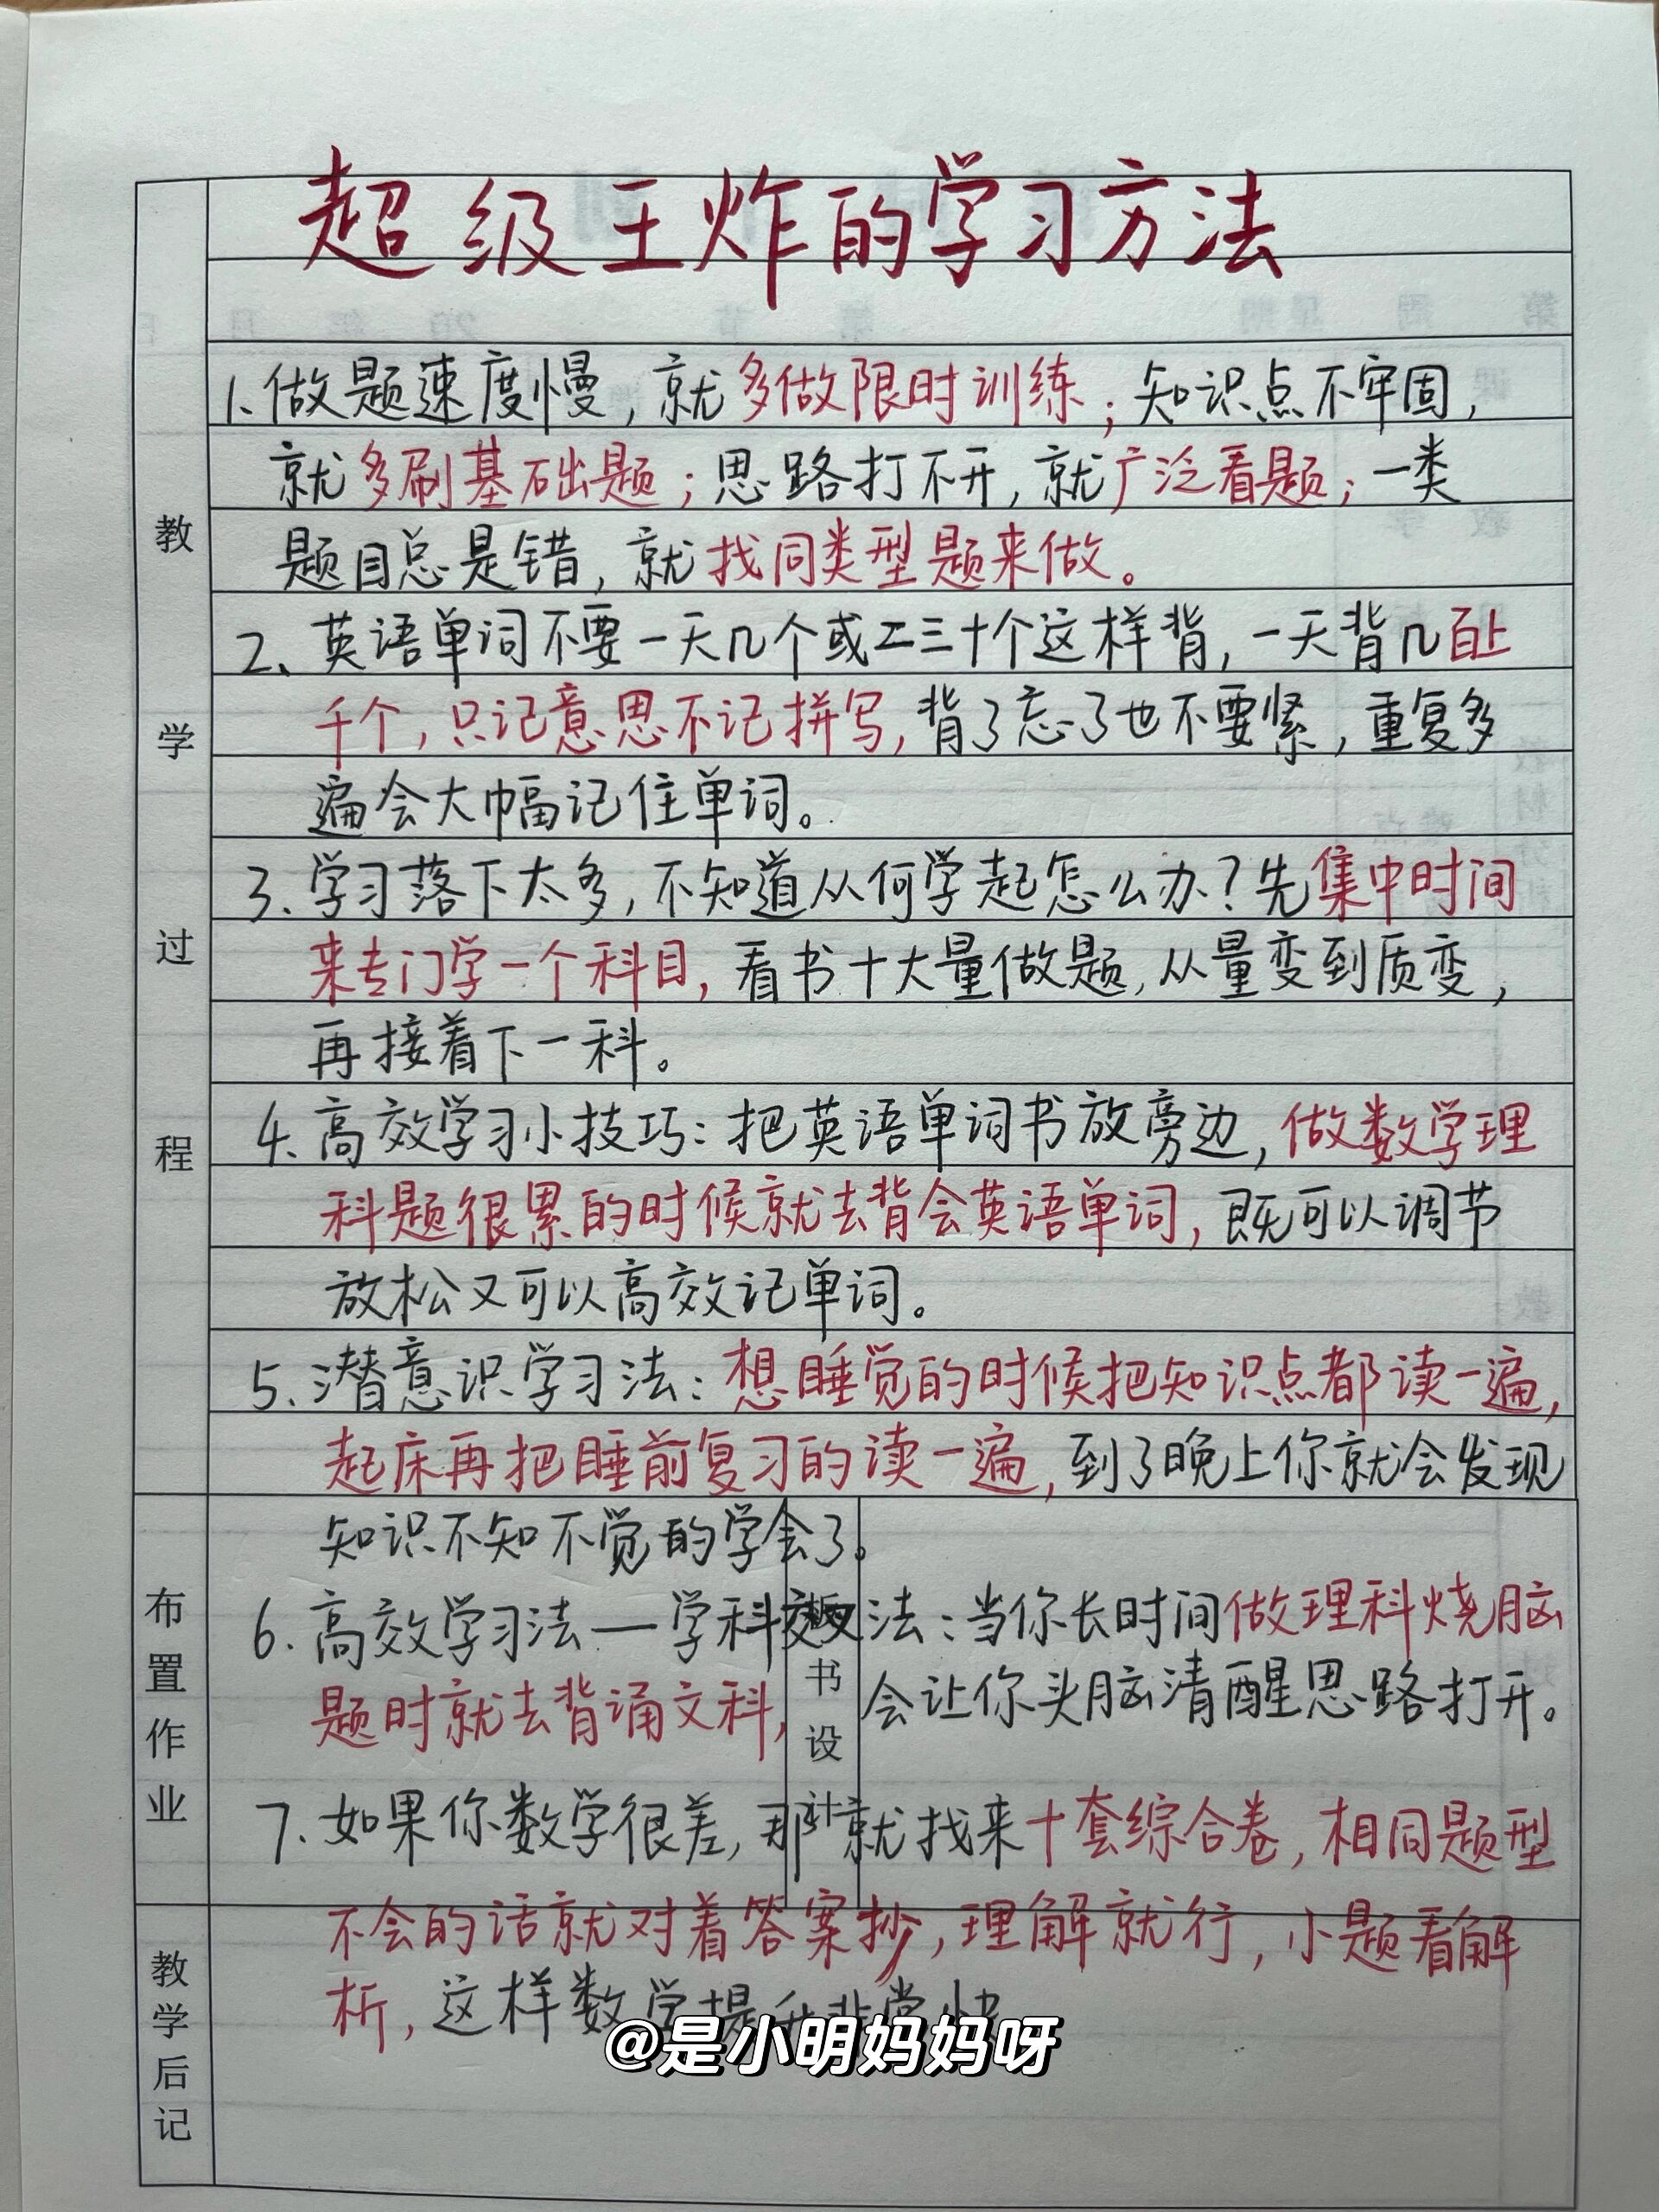 超级王炸的学习方法
1、做题速度慢，就多做限时训练；知识点不牢固，
就多刷基础题；思路打不开，就广泛看题；一类
题目总是错，就找同类型题来做。
2、英语单词不要一天几个或二三十个这样背，一天背几百上
千个，只记意思不记拼写，背了忘了也不要紧，重复多
遍会大幅记住单词。
3、学习落下太多，不知道从何学起怎么办？先集中时间
来专门学一个科目，看书十大量做题，从量变到质变，
再接着下一科。
4、高效学习小技巧：把英语单词书放旁边，做数学理
科题很累的时候就去背会英语单词，既可以调节
放松又可以高效记单词。
5、潜意识学习法：想睡觉的时候把知识点都读一遍，
起床再把睡前复习的读一遍，到了晚上你就会发现
知识不知不觉的学会了。
6.高效学习法一学科交叉法：当你长时间做理科烧脑
题时就去背诵文科，会让你头脑清醒思路打开。
7、如果你数学很差，那就找来十套综合卷，相同题型
不会的话就对着答案抄，理解就行，小题看解
析，这样数学提升非常快
教学过程
布置作业
书设计
教学后记
@是小明妈妈呀